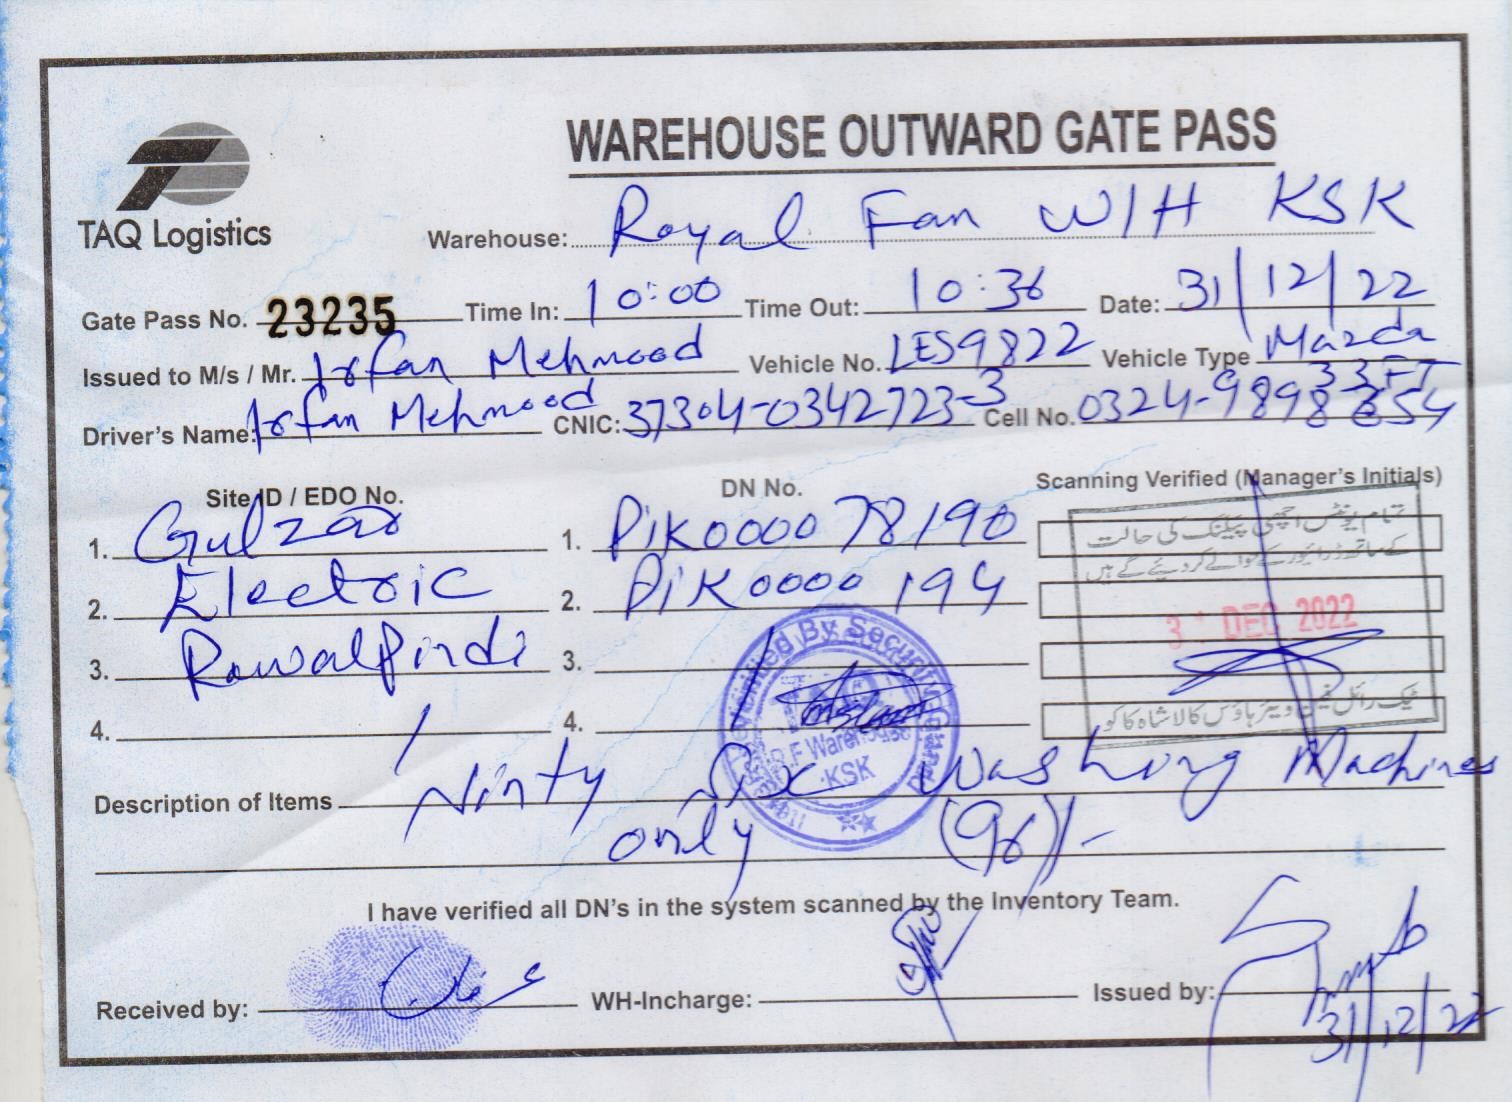 WAREHOUSE OUTWARD GATE PASS
TAQ Logistics
Warehouse: Royal Fan W/H KSK
Gate Pass No. 23235 Time In: 10:00 Time Out: 10:36 Date: 31/12/22
Issued to M/s / Mr. Irfan Mehmood Vehicle No. LES9822 Vehicle Type Mazda 33FT
Driver's Name: Irfan Mehmood CNIC: 37304-0342723-3 Cell No. 0324-9898654
Site ID / EDO No. DN No. Scanning Verified (Manager's Initials)
1. Gulzar 1. PIK000078190
2. Electric 2. PIK0000194
3. Rawalpindi 3.
4. 4.
تمام یونٹس اچھی پیکنگ کی حالت
کے ساتھ ڈرائیور کے حوالے کر دیئے گئے ہیں
31 DEC 2022
ٹیک رائل فین ویئر ہاؤس کالا شاہ کاکو
By Security Guard
R.F Warehouse
KSK
Description of Items Ninty Six Washing Machines
only (96)/-
I have verified all DN's in the system scanned by the Inventory Team.
Received by: عرفان WH-Incharge: Issued by:
31/12/22